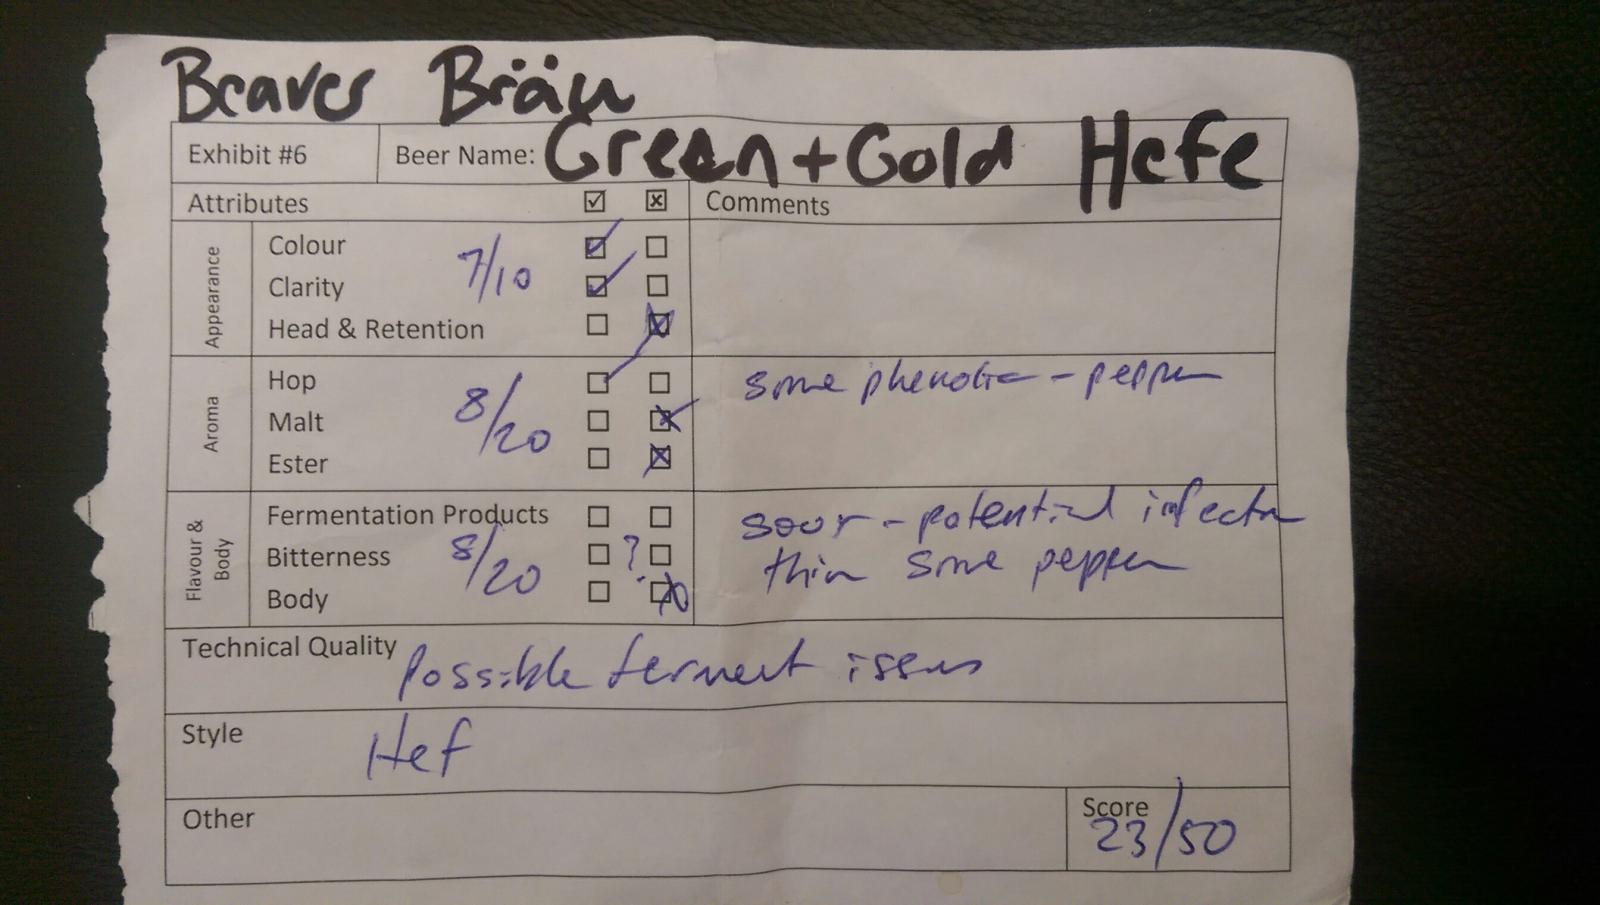 Beaver Bräu
Exhibit #6 Beer Name: Green + Gold Hefe
Attributes ☑ ☒ Comments
Appearance
Colour ☑ ☐
Clarity ☑ ☐
Head & Retention ☐ ☒
7/10
Aroma
Hop ☑ ☐
Malt ☐ ☒
Ester ☐ ☒
8/20
some phenolic - pepper
Flavour &
Body
Fermentation Products ☐ ☐
Bitterness ☐ ? ☐
Body ☐ ☒
8/20
sour - potential infection
thin some pepper
Technical Quality Possible ferment issues
Style Hef
Other
Score
23/50